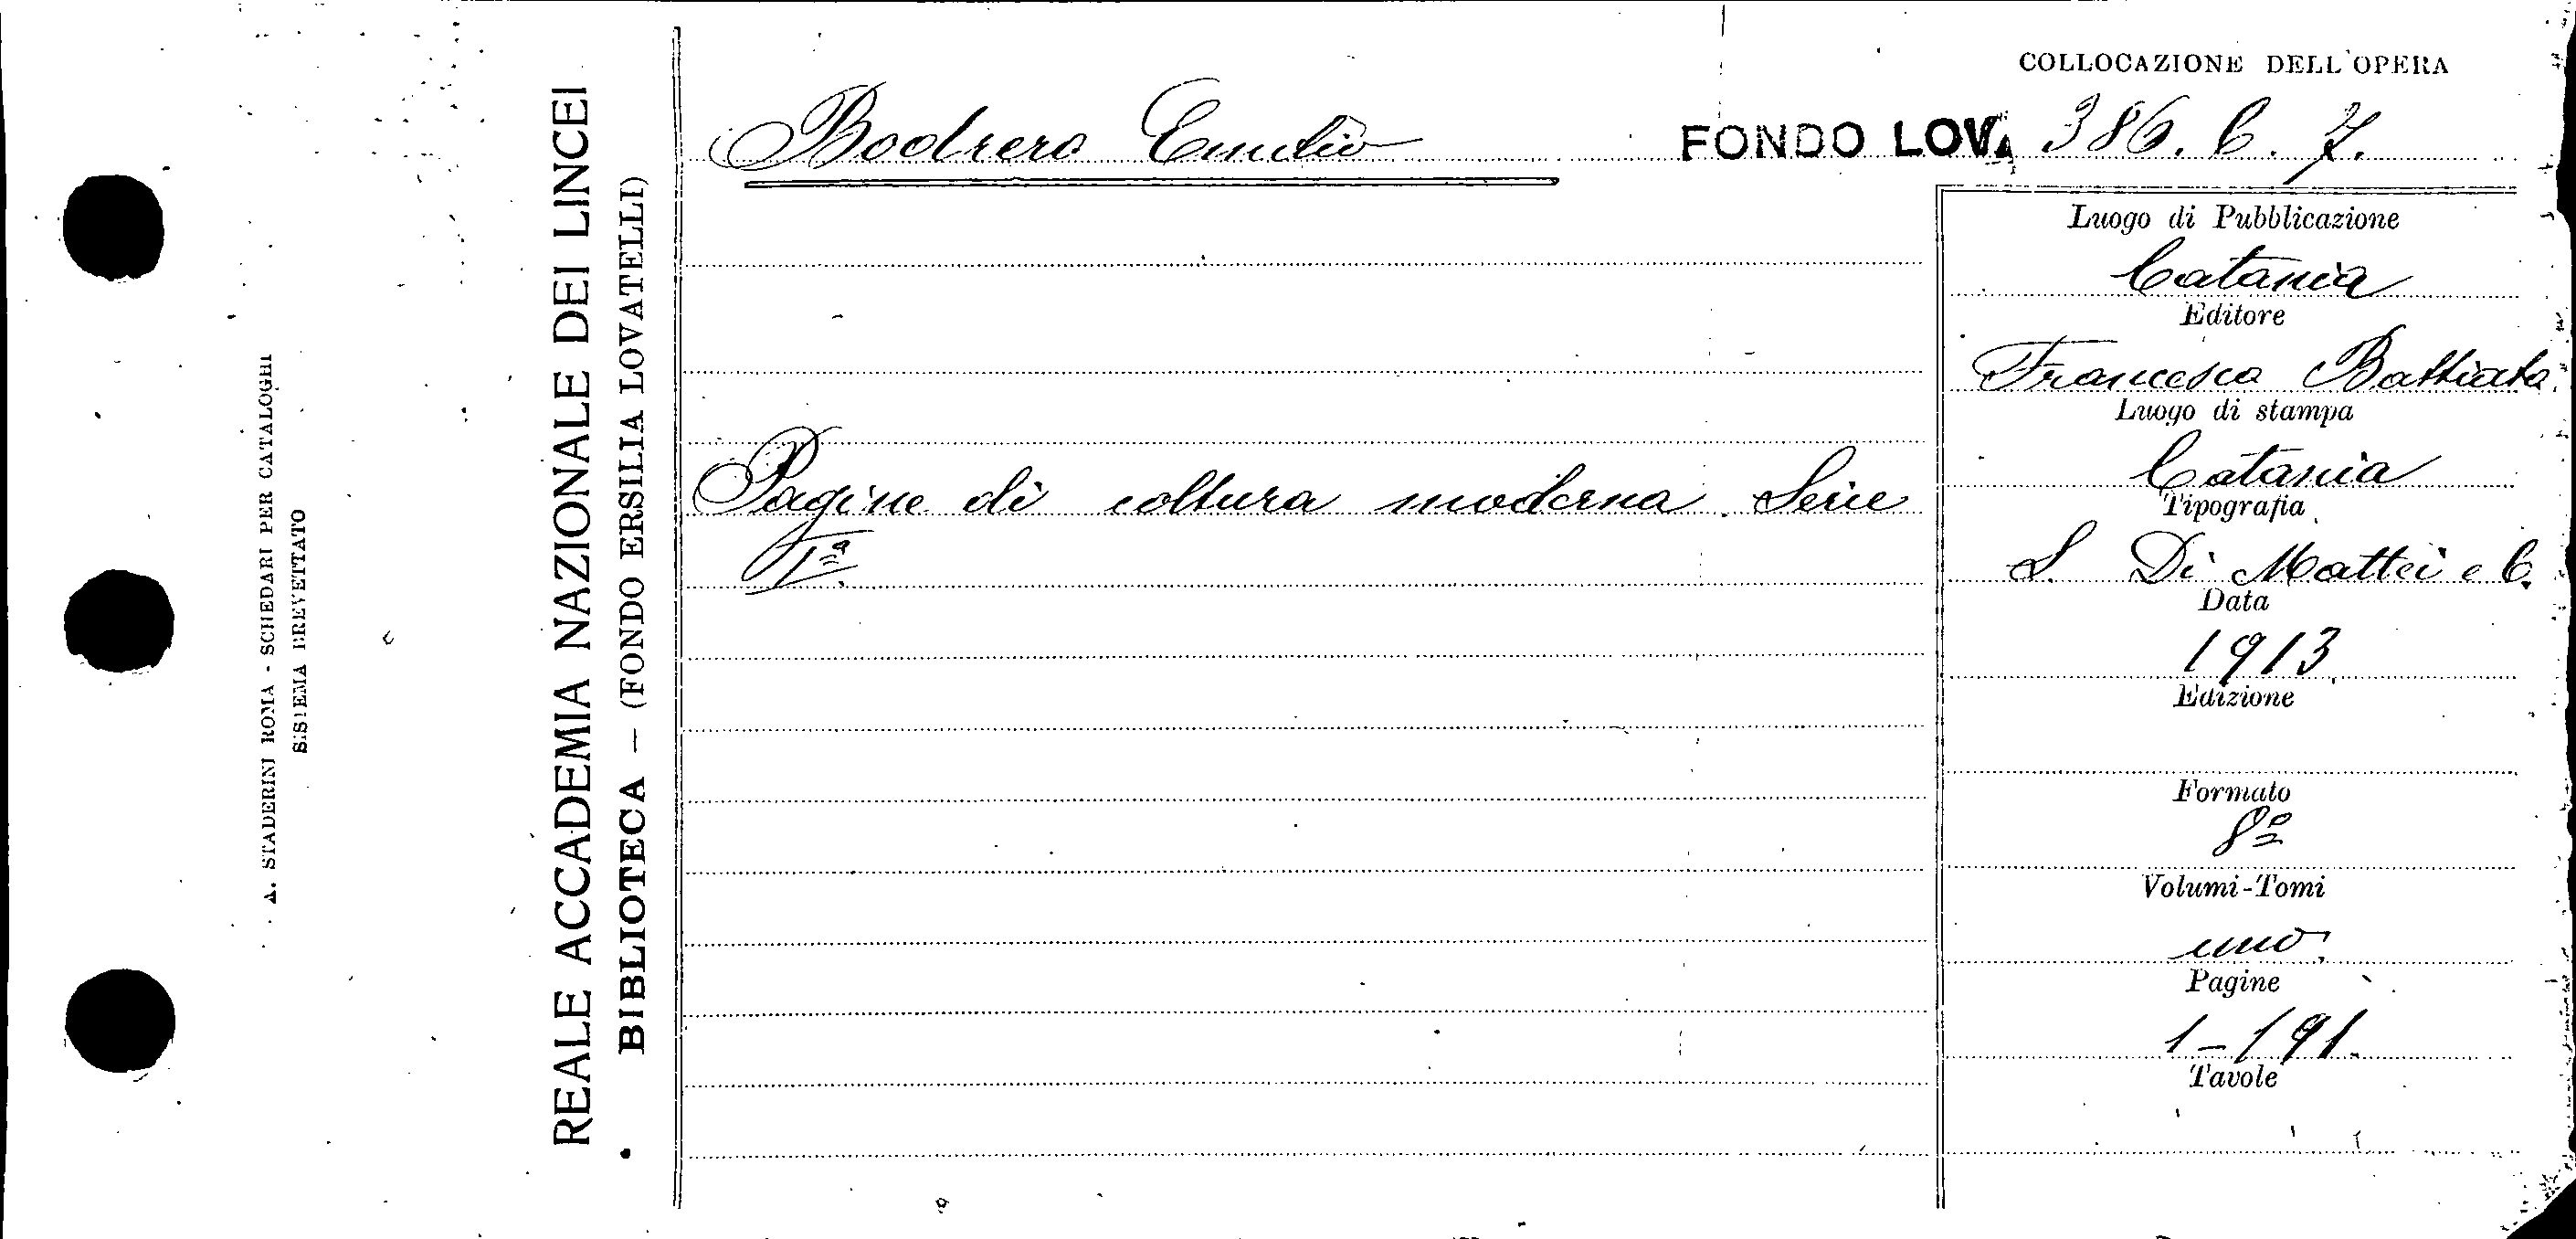 A. STADERINI ROMA - SCHEDARI PER CATALOGHI
SISTEMA BREVETTATO
REALE ACCADEMIA NAZIONALE DEI LINCEI
BIBLIOTECA — (FONDO ERSILIA LOVATELLI)
COLLOCAZIONE DELL'OPERA
Bodrero Emilio FONDO LOV. 386. C. 7.
Pagine di coltura moderna. Serie
Iª.
Luogo di Pubblicazione
Catania
Editore
Francesco Battiato
Luogo di stampa
Catania
Tipografia
S. Di Mattei e C.
Data
1913
Edizione
Formato
8º
Volumi-Tomi
uno
Pagine
1-191.
Tavole